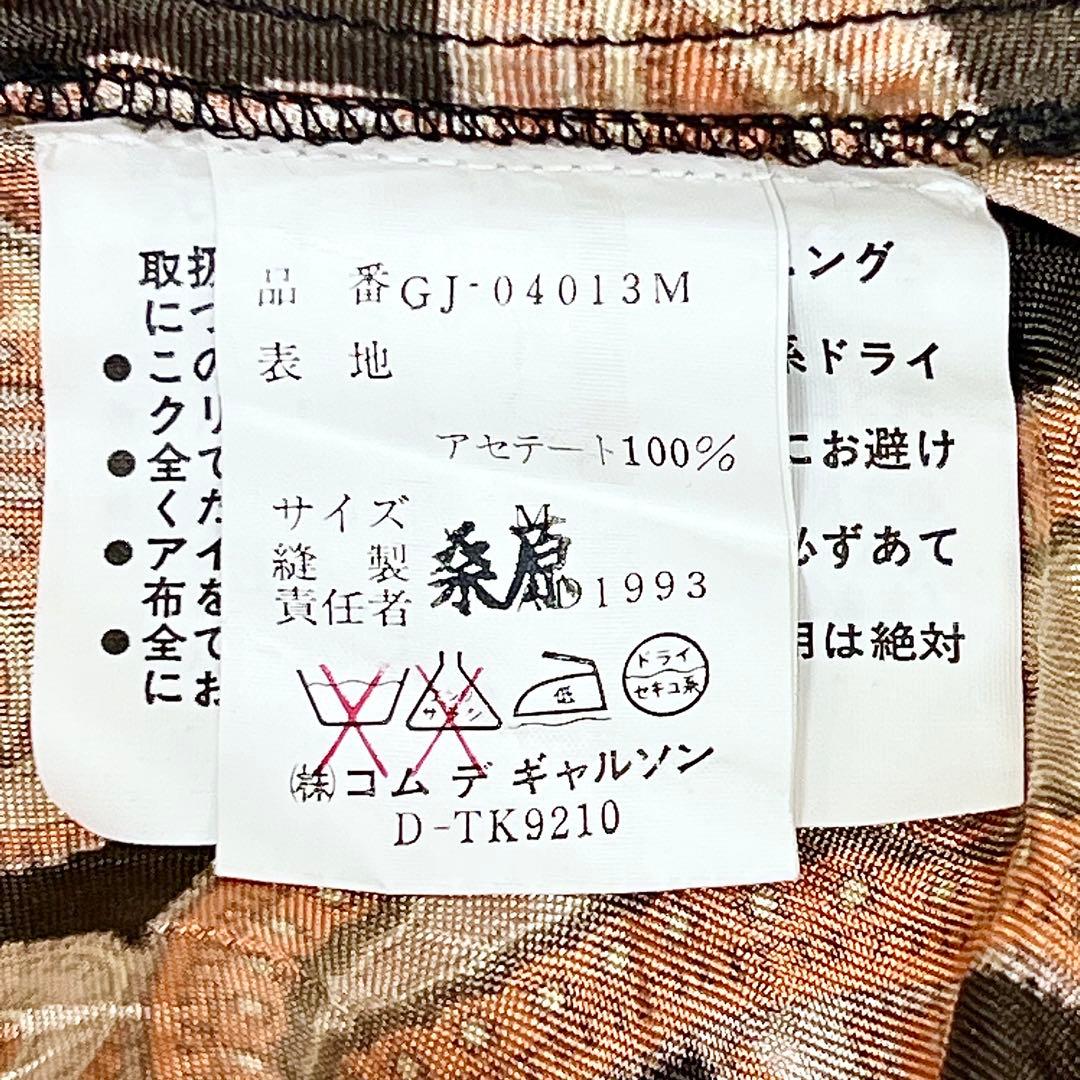 品番 GJ-04013M
表地
アセテート100%
サイズ M
縫製 桑原
責任者 AD1993
低
ドライ
セキユ系
㈱コムデギャルソン
D-TK9210
取扱
につ
ング
●この
系ドライ
クリ
●全て
にお避け
くだ
●アイ
必ずあて
布を
●全て
用は絶対
にお